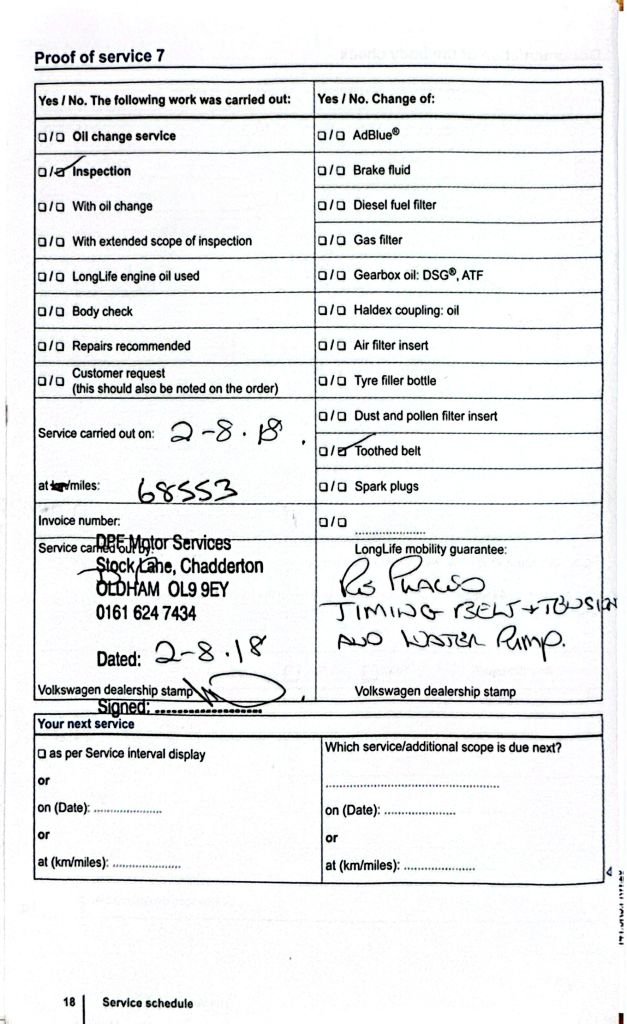 Proof of service 7
Yes / No. The following work was carried out:
☐/☐ Oil change service
☐/☑ Inspection
☐/☐ With oil change
☐/☐ With extended scope of inspection
☐/☐ LongLife engine oil used
☐/☐ Body check
☐/☐ Repairs recommended
☐/☐ Customer request
(this should also be noted on the order)
Service carried out on: 2-8.18.
at km/miles: 68553
Invoice number:
Service carried out by:
DPF Motor Services
Stock Lane, Chadderton
OLDHAM OL9 9EY
0161 624 7434
Dated: 2-8.18
Volkswagen dealership stamp
Signed: ....................
Yes / No. Change of:
☐/☐ AdBlue®
☐/☐ Brake fluid
☐/☐ Diesel fuel filter
☐/☐ Gas filter
☐/☐ Gearbox oil: DSG®, ATF
☐/☐ Haldex coupling: oil
☐/☐ Air filter insert
☐/☐ Tyre filler bottle
☐/☐ Dust and pollen filter insert
☐/☑ Toothed belt
☐/☐ Spark plugs
☐/☐ ....................
LongLife mobility guarantee:
TIMING BELT + TENSION
AND WATER PUMP.
Volkswagen dealership stamp
Your next service
☐ as per Service interval display
or
on (Date): ....................
or
at (km/miles): ....................
Which service/additional scope is due next?
..................................................
on (Date): ....................
or
at (km/miles): ....................
18 Service schedule